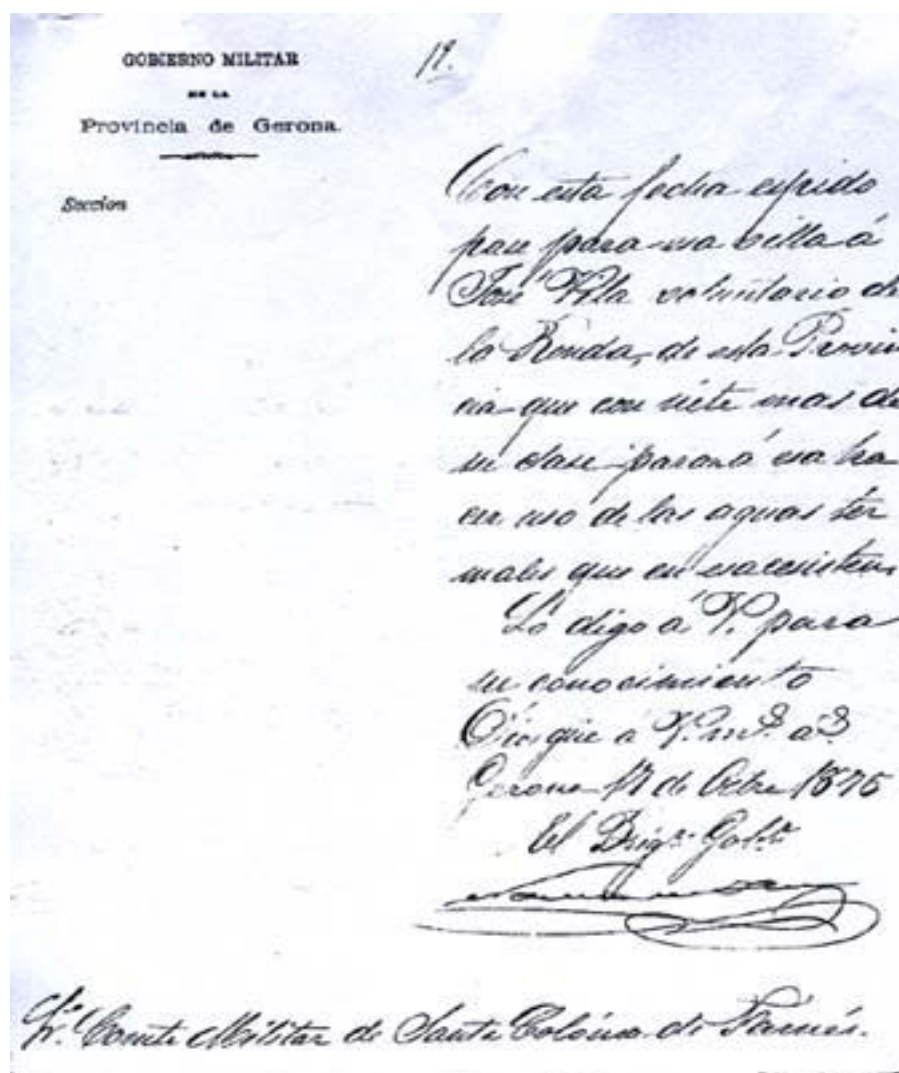 GOBIERNO MILITAR
DE LA
Provincia de Gerona.
Seccion
Con esta fecha espido
pase para esa villa á
José Vila voluntario de
la Ronda, de esta Provin
cia que con siete mas de
su clase pasan á esa ha
cer uso de las aguas ter
males que en esa ecsisten.
Lo digo á V. para
su conocimiento
Dios gue á V. ms. as.
Gerona 17 de Octbre 1875
El Brigr. Gobr.
Sr. Comte Militar de Santa Coloma de Farnés.